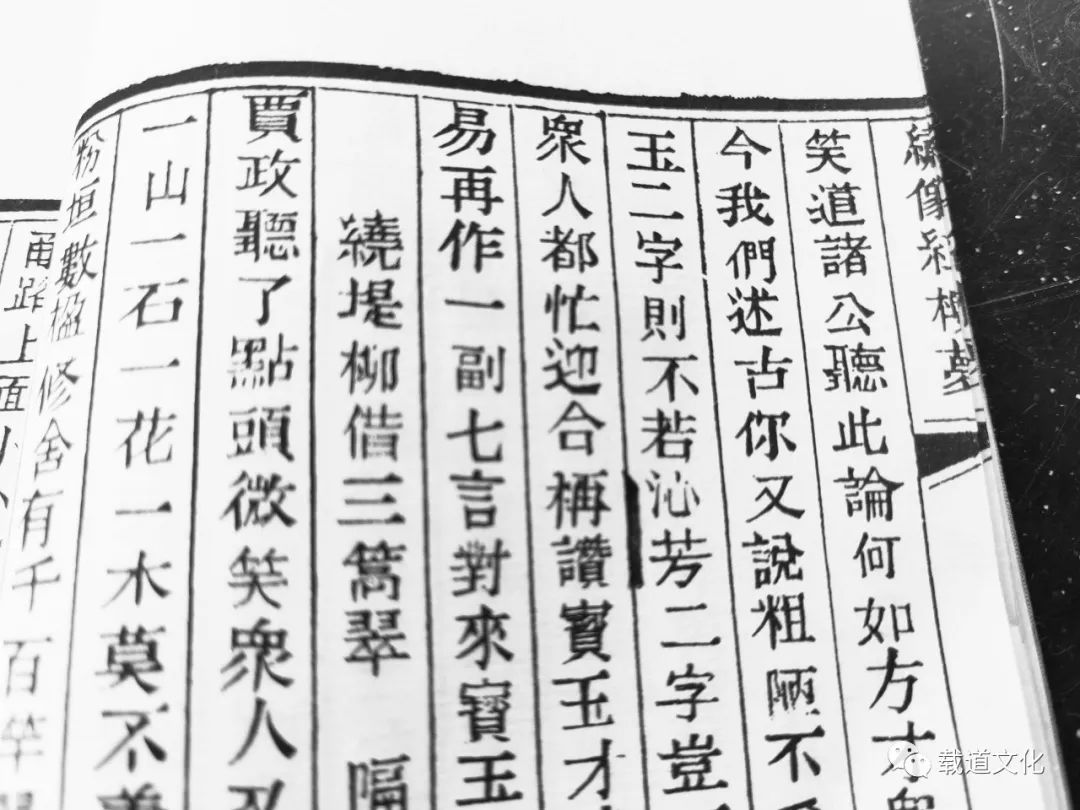 繡像紅樓夢
笑道諸公聽此論何如方才衆
今我們述古你又說粗陋不
玉二字則不若沁芳二字豈
衆人都忙迎合稱讚寳玉才
易再作一副七言對來寳玉
繞堤柳借三篙翠 隔
賈政聽了點頭微笑衆人又
一山一石一花一木莫不着
粉垣數楹修舍有千百竿
甬路上面小
载道文化